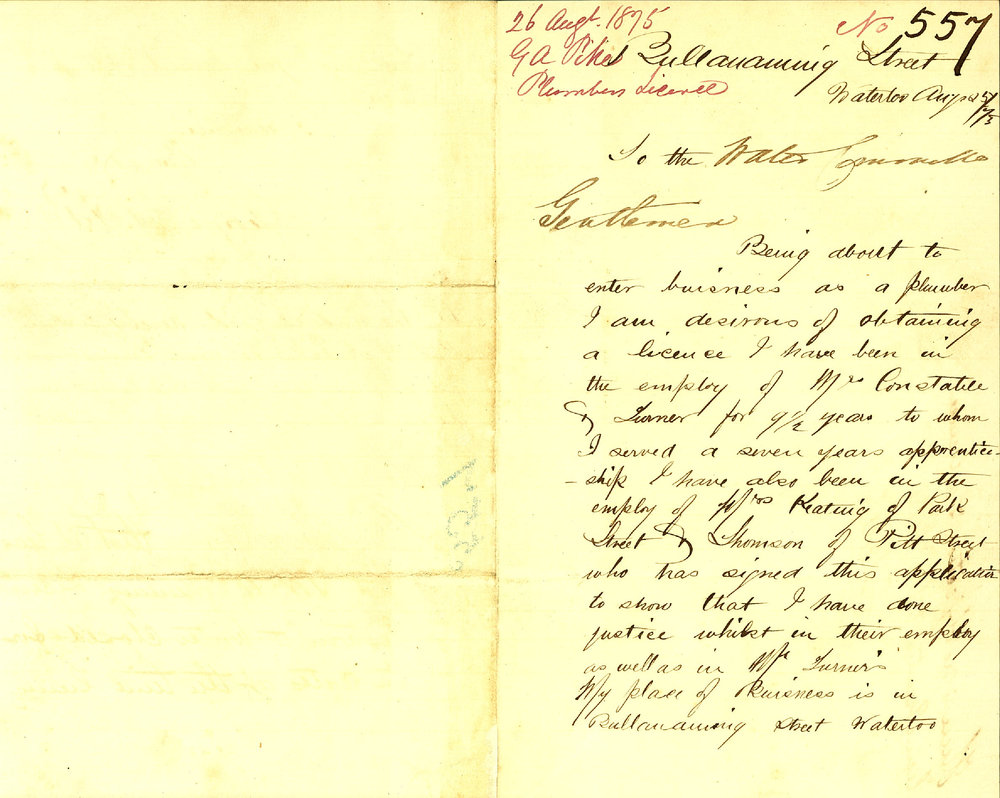 26 Augt. 1875
G A Pike
Plumbers Licence
No 557
Bullanaming Street
Waterloo Aug 25/75
To the Water Committee
Gentlemen
Being about to
enter buisness as a plumber
I am desirous of obtaining
a licence I have been in
the employ of Mrs Constable
& Turner for 9 1/2 years to whom
I served a seven years apprentice-
-ship I have also been in the
employ of Mrs Keating of Park
Street & Thomson of Pitt Street
who has signed this application
to show that I have done
justice whilst in their employ
as well as in Mr Turner's
My place of Buisness is in
Bullanaming Street Waterloo